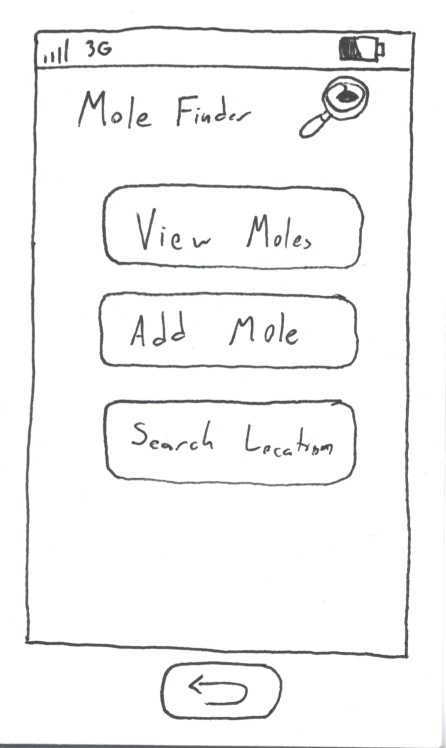 3G
Mole Finder
View Moles
Add Mole
Search Location